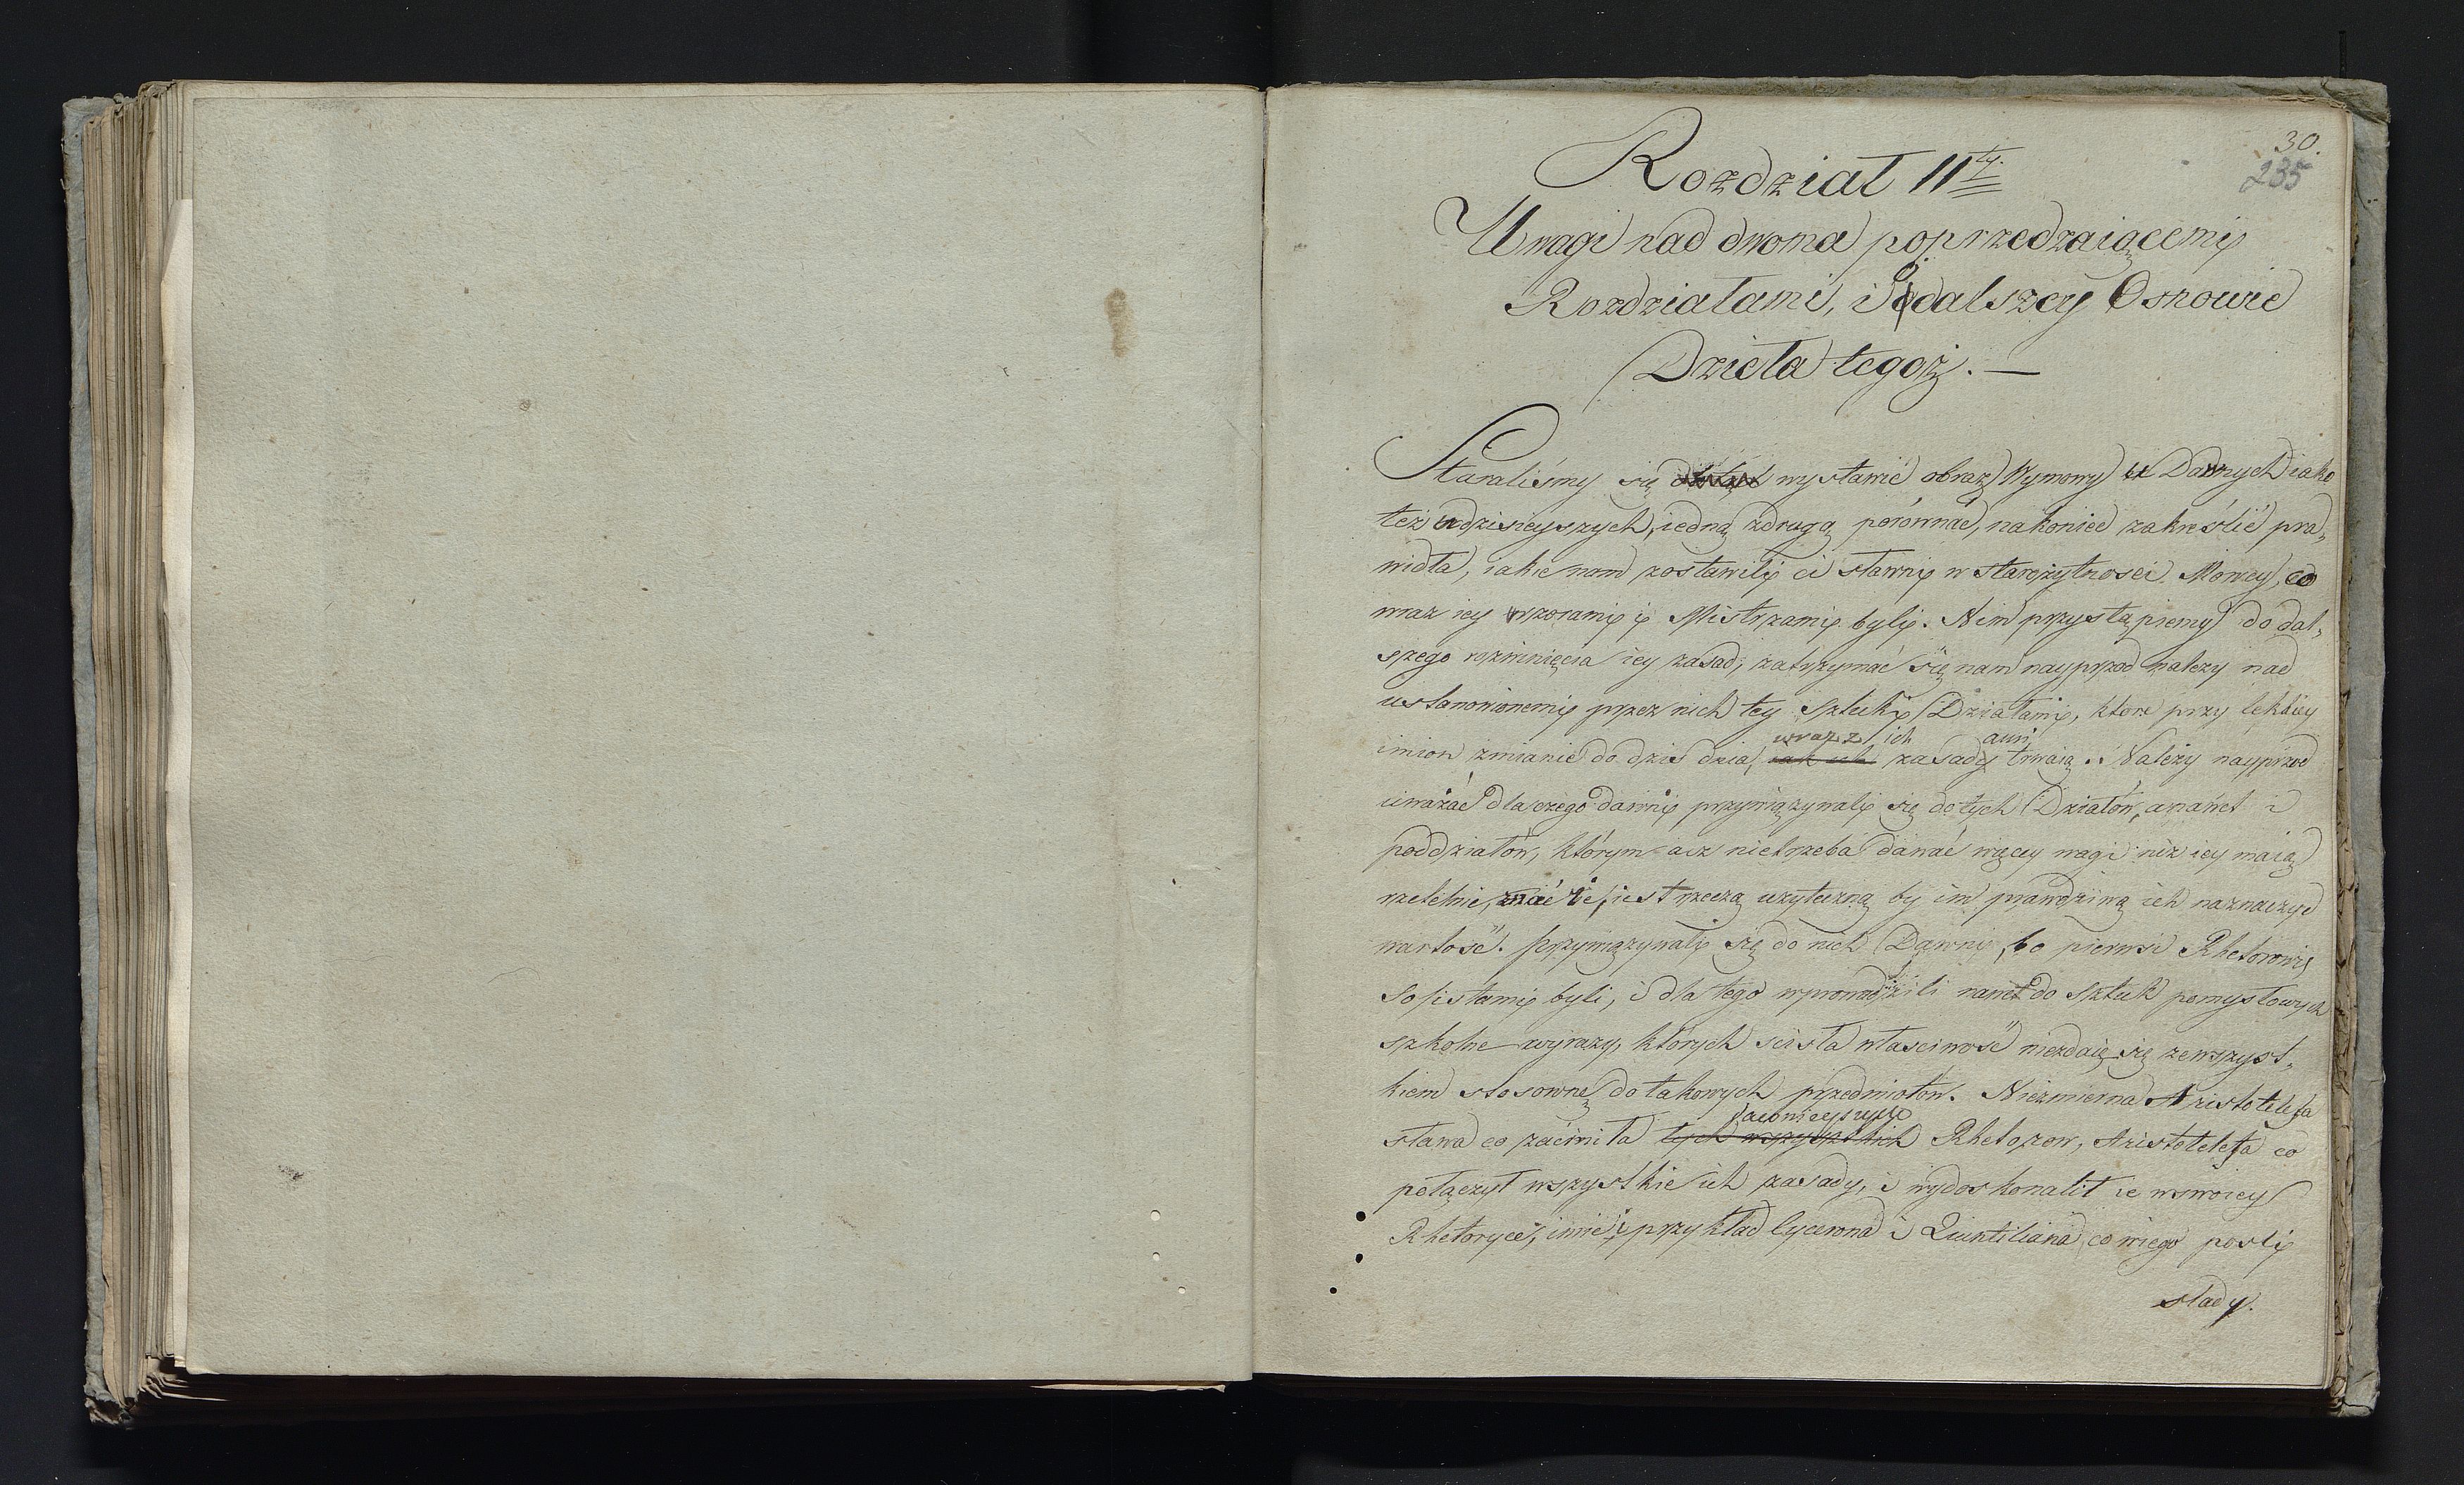 30.
235
Rozdział IIty.
Uwagi nad dwoma poprzedzaiącemi
Rozdziałami, i o dalszey Osnowie
Dzieła tegoż. —
Staraliśmy się wystawić obraz Wymowy u Dawnych iako
też u dzisieyszych, iedną z drugą porównać, nakoniec zakreślić pra„
widła, iakie nam zostawili ci sławni w starożytnosci Mowcy, co
wraz iey wzorami i Mistrzami byli. Nim przystąpiemy do dal„
szego rozwinięcia iey zasad, zatrzymać się nam nayprzod należy nad
ustanowionemi przez nich tey sztuki Działami, ktore przy lekkiey
wraz z ich
imion zmianie do dziś dnia, zasady trwaią. Należy nayprzod
uważać dlaczego dawni przywiązywali się do tych Działów, a nawet i
poddziałów, którym acz nietrzeba dawać więcey wagi niż iey maią
rzetelnie, iest rzeczą użyteczną by im prawdziwą ich naznaczyć
wartość. Przywiązywali się do nich Dawni, bo pierwsi Rhetorowie
Sofistami byli, i dla tego wprowadzili nawet do sztuk pomysłowych
szkolne wyrazy, których scisła własciwość niezdaię się zewszyst„
kiem stosowną do takowych przedmiotow. Niezmierna Aristotelesa
dawnieyszych
sława co zaćmiła tych wszystkich Rhetorow, Aristotelesa co
połączył wszystkie ich zasady, i wydoskonalił ie w swoiey
Rhetoryce, imie i przykład Cycerona i Quintiliana co w iego poszli
slady.